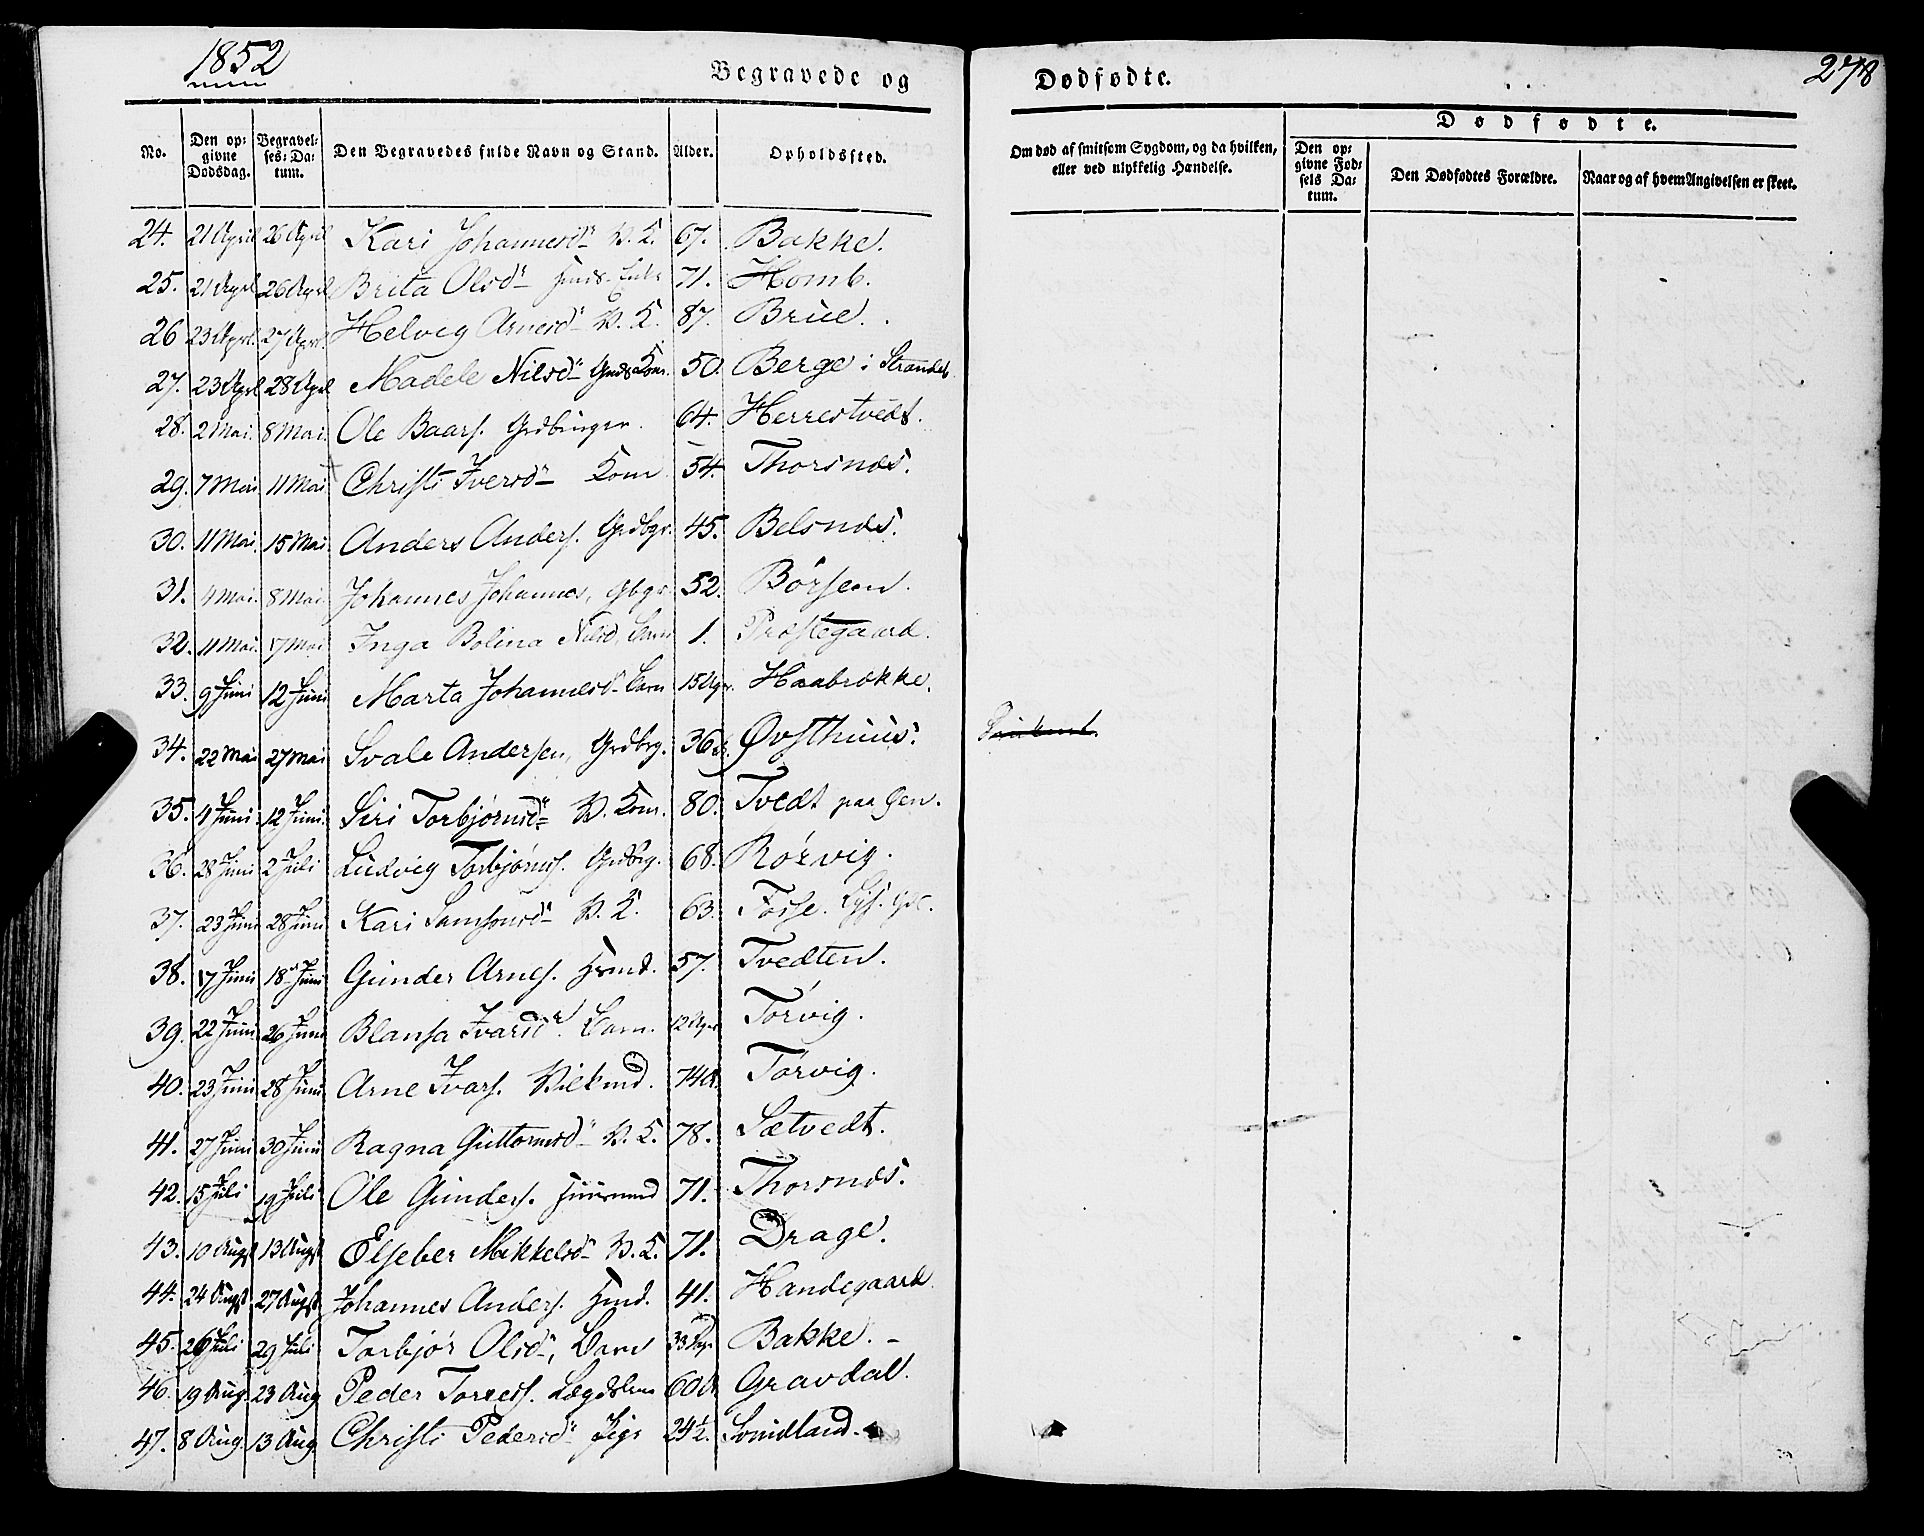 1852
Begravede og Dødfødte.
278
No. Den opgivne Dødsdag. Begravelses-Datum. Den Begravedes fulde Navn og Stand. Alder. Opholdssted.
Om død af smitsom Sygdom, og da hvilken, eller ved ulykkelig Hændelse.
Dødfødte.
Den opgivne Fødsels Datum. Den Dødfødtes Forældre. Naar og af hvem Angivelsen er skeet.
24. 21 April 26 April Kari Johannesdr V. K. 67. Bakke.
25. 21 Aprl 26 Aprl Brita Olsdr Huus. Enke 71. Homb.
26 23 Aprl. 27 Aprl. Helvig Arnesdr V. K. 87. Brüe.
27. 23 Aprl 28 Aprl Madele Nilsdr GmdsKon. 50. Berge i Strandeb
28. 2 Mai. 8 Mai. Ole Baars. Grdbruger. 64. Herrestvedt.
29. 7 Mai 11 Mai Christi Iversdr Kone 54. Thorsnæs.
30. 11 Mai. 15 Mai. Anders Anders. Grdbgr. 45. Belsnæs.
31. 4 Mai. 8 Mai. Johannes Johannes, Gbgr. 52. Børsem.
32. 11 Mai. 17 Mai Inga Bolina Nilsd. Barn 1. Prestegaard.
33. 9 Juni 12 Juni Marta Johannesdr Barn 15 Uger. Haabrokke.
34. 22 Mai 27 Mai Svale Andersen, Grdbrg. 36 Øvsthuus.
35. 4 Juni. 12 Juni. Siri Torbjørnsdr V. Kone. 80. Tvedt paa Øen.
36. 28 Juni 2 Juli Ludvig Torbjørns. Grdbrg. 68. Rørvig.
37. 23 Juni 28 Juni Kari Samsonsdr V. K. 63. Fosse.
38. 17 Juni 18 Juni Gunder Arnes. Hsmd. 57. Tvedten.
39. 22 Juni 26 Juni Blansa Ivarsdr Barn. 12 Uger Torvig.
40. 23 Juni 28 Juni Arne Ivars. Vilkmd. 74 Torvig.
41. 27 Juni 30 Juni Ragna Guttormsdr V. K. 78. Sætvedt.
42. 15 Juli 19 Juli Ole Gunders. Huusmand 71. Thorsnæs.
43. 10 Augst 13 Augst Elseber Mikkelsdr V. K. 71. Drage.
44. 24 Augst 27 Augst Johannes Anders. Hmd. 41. Handegaard
45. 26 Juli 29 Juli Torbjør Olsdr, Barn 33 Dage Bakke. –
46. 19 Aug. 23 Aug Peder Torres. Lægdslem 60 Gravdal.
47. 8 Aug. 13 Aug. Christi Pedersdr Pige 24 1/2. Smidland.